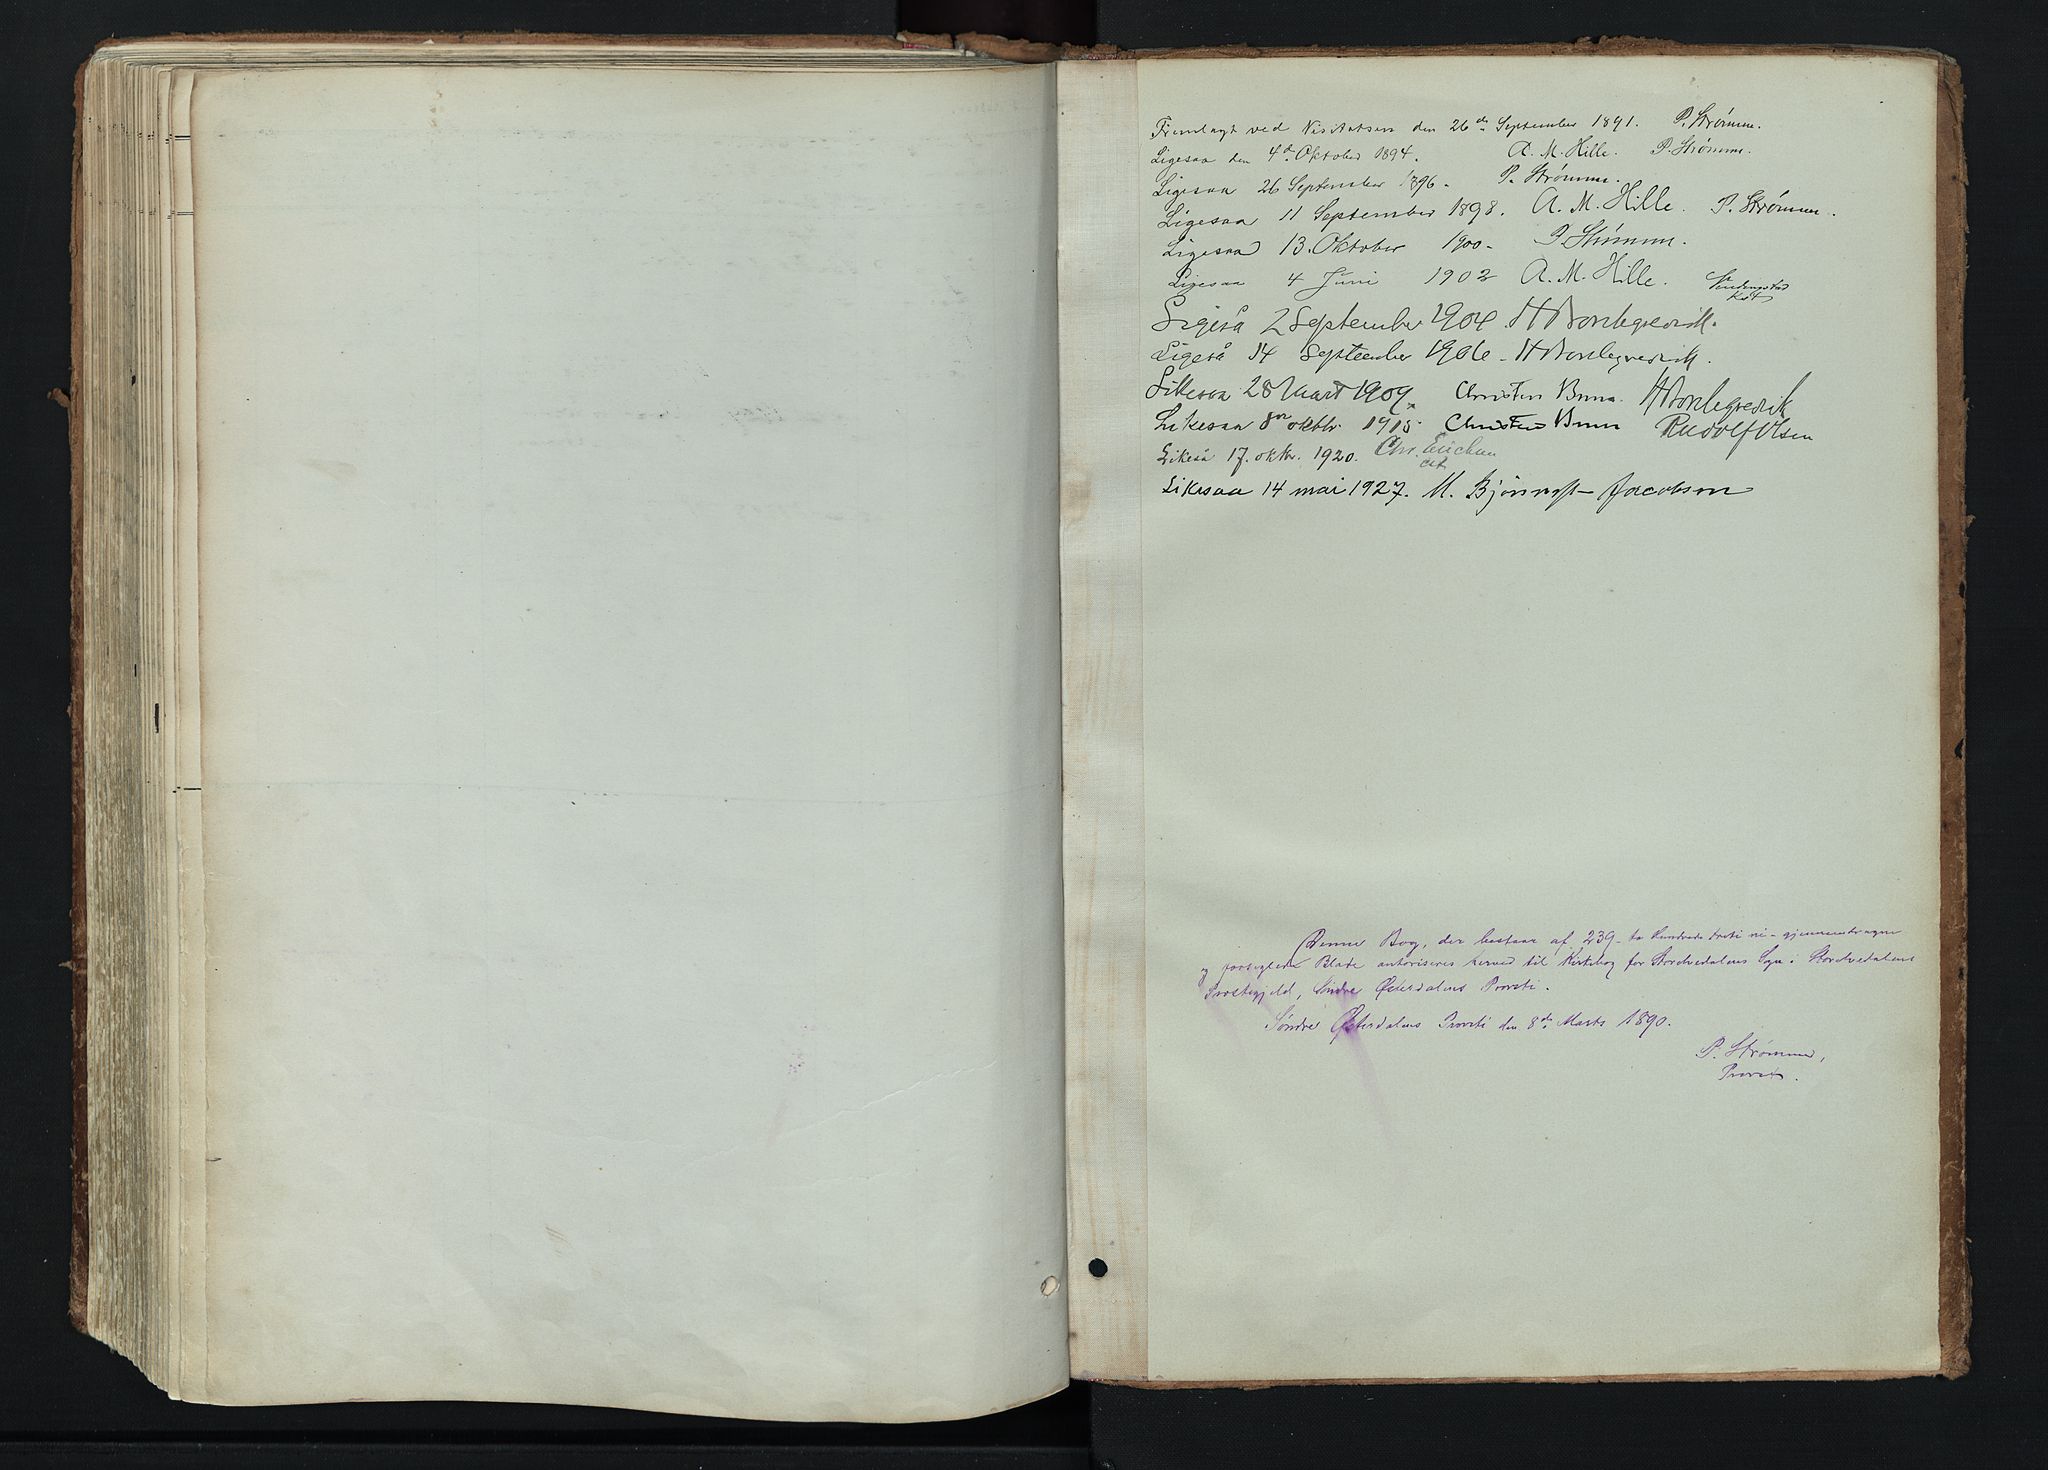 Fremlagt ved Visitatsen den 26de September 1891. P. Strømme.
Ligesaa den 4de Oktober 1894. A. M. Hille. P. Strømme.
Ligesaa 26 September 1896. P. Strømme.
Ligesaa 11 September 1898. A. M. Hille. P. Strømme.
Ligesaa 13. Oktober 1900. P. Strømme.
Ligesaa 4 Juni 1902 A. M. Hille.
Kst
Ligeså 2 September 1904. H
Ligeså 14 September 1906. H
Likesaa 28 Mart 1909. Christen Brun
Likesaa 8de oktbr. 1915. Christen Brun Rudolf Olsen
Likeså 17. oktr. 1920. Chr.
cst
Likesaa 14 mai 1927. M. Bjønness-Jacobsen
Denne Bog, der bestaar af 239 - to Hundrede treti ni - gjennemdragne
og forseglede Blade autoriseres herved til Kirkebog for Stordvedalens Sogn i Stordvedalens
Prestegjeld, Søndre Østerdalens Provsti.
Søndre Østerdalens Provsti den 8de Marts 1890.
P. Strømme,
Provst.